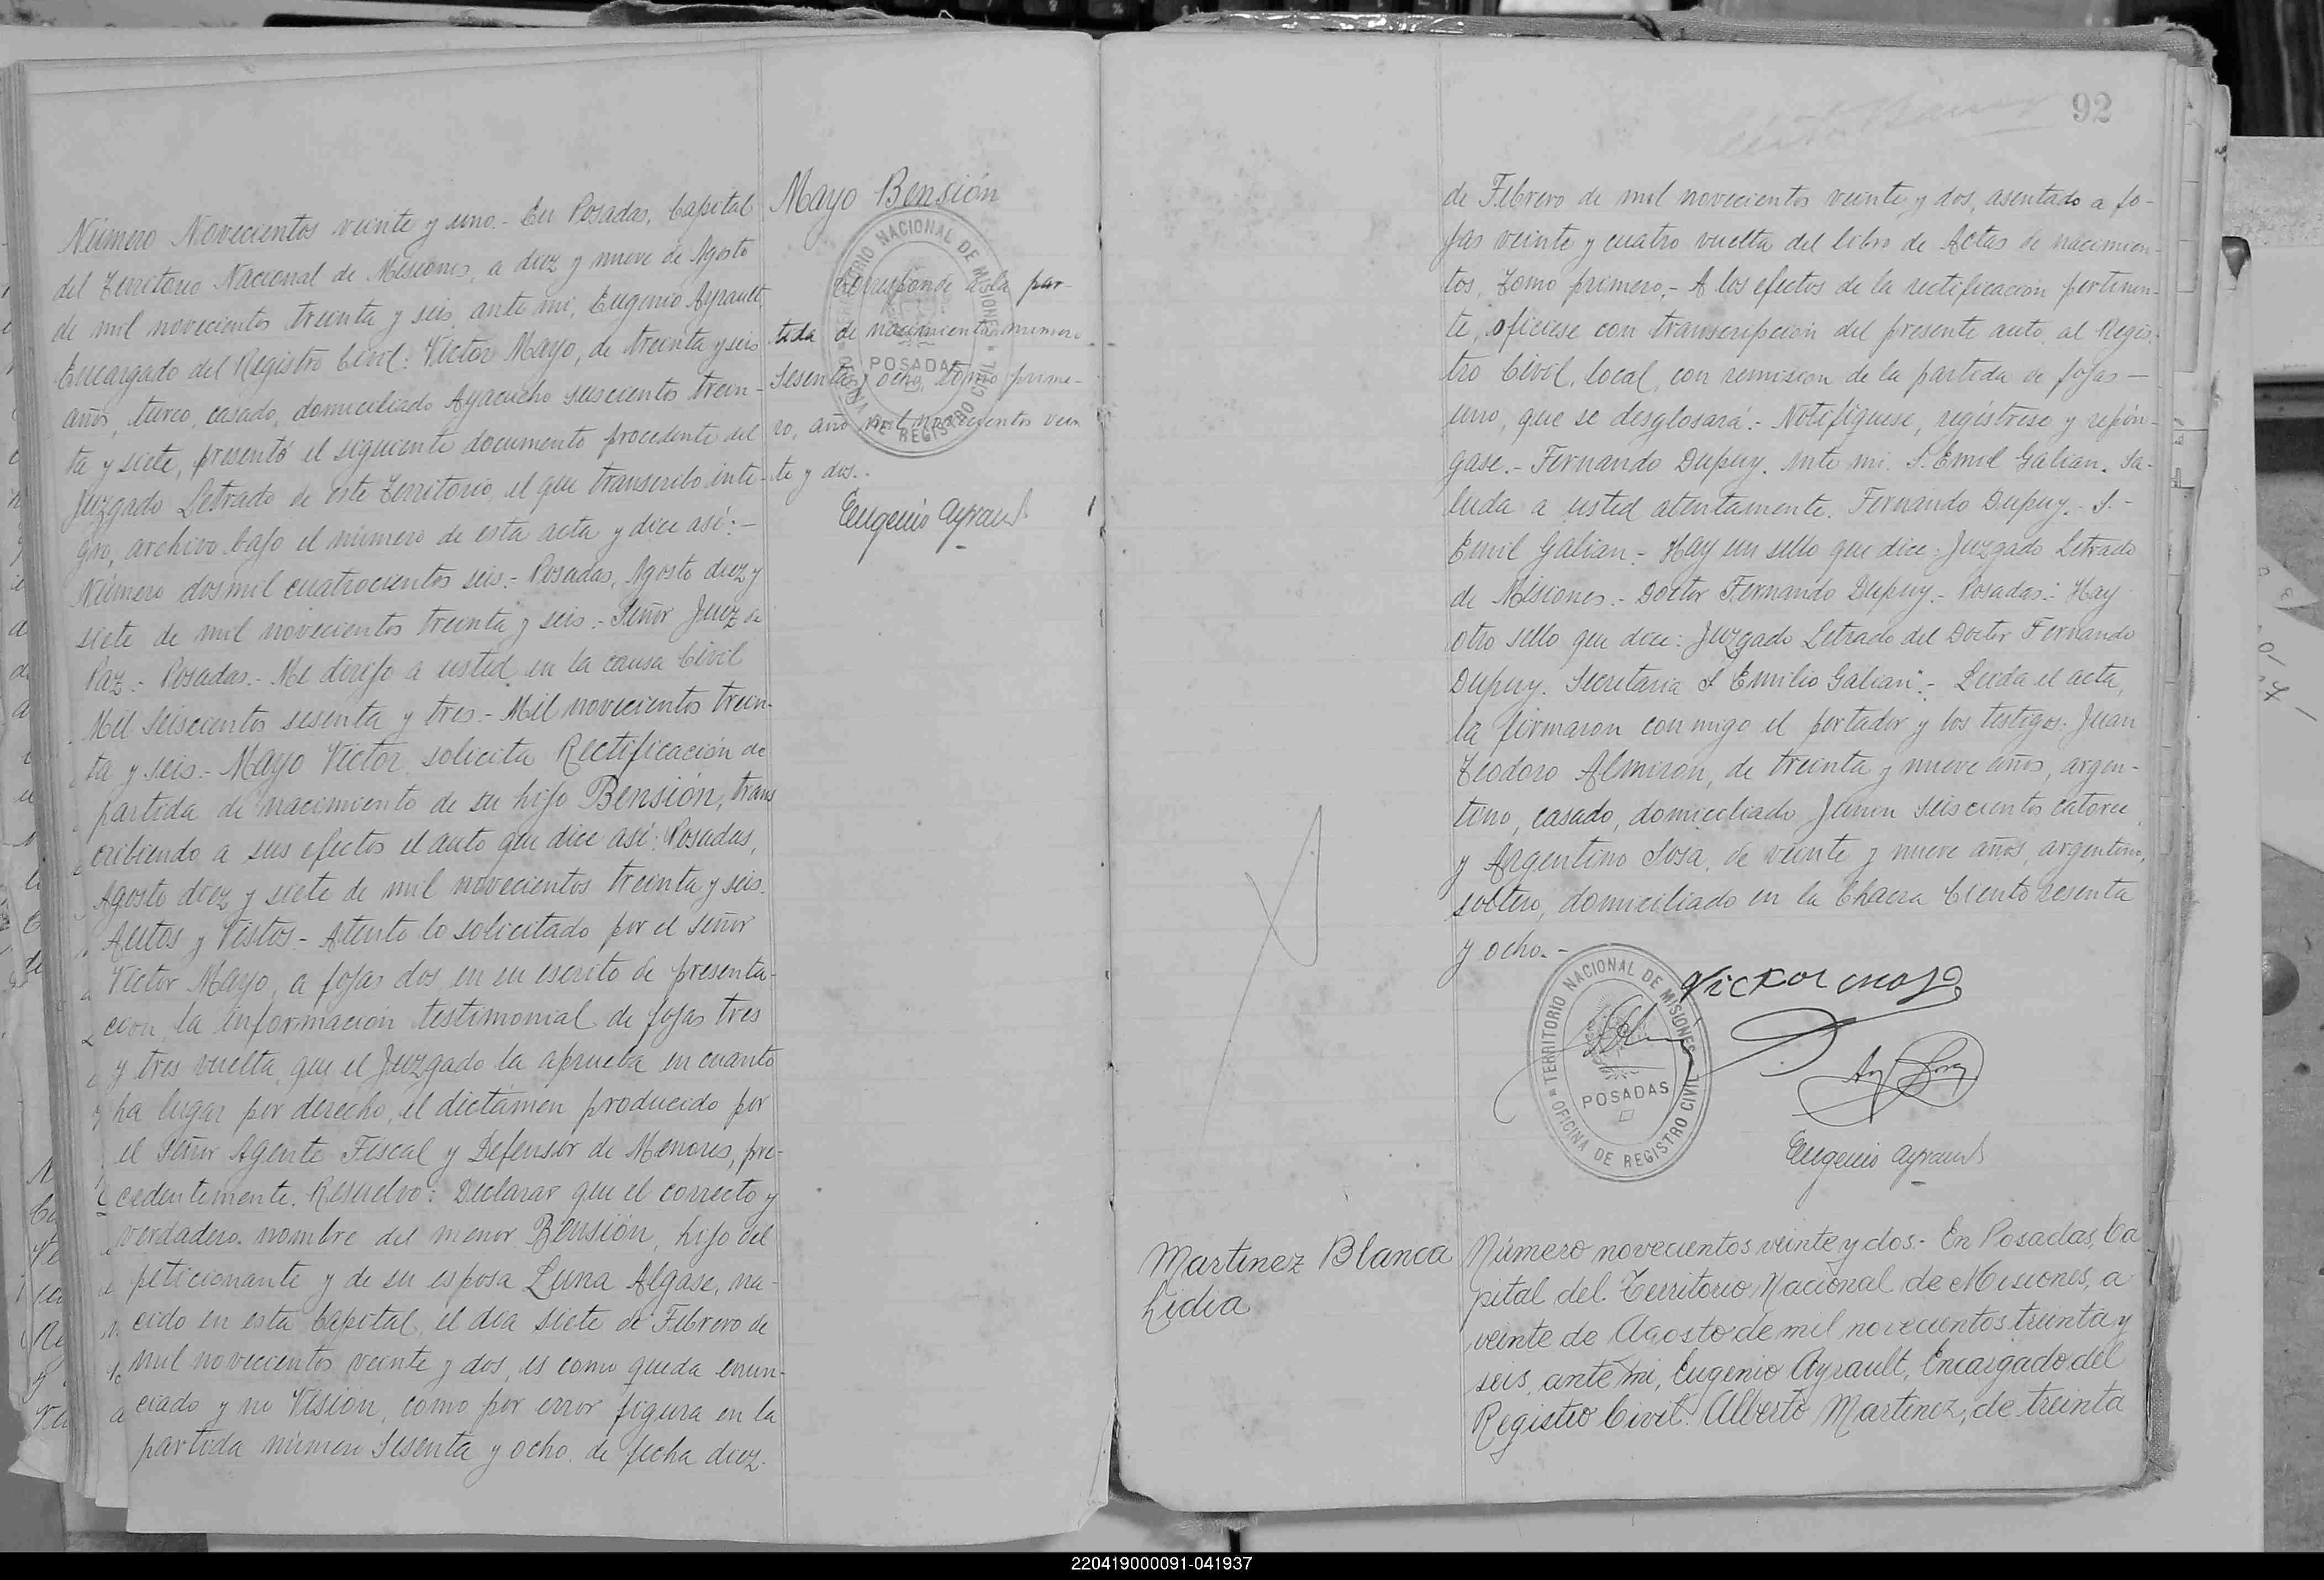 Número Novecientos veinte y uno.- En Posadas, Capital
del Territorio Nacional de Misiones, a diez y nueve de Agosto
de mil novecientos treinta y seis, ante mi, Eugenio Ayrault,
Encargado del Registro Civil: Víctor Mayo, de treinta y seis
años, turco, casado, domiciliado Ayacucho seiscientos trein-
ta y siete, presentó el siguiente documento procedente del
Juzgado Letrado de este Territorio, el que transcribo inte-
gro, archivo bajo el número de esta acta y dice así:-
Número dosmil cuatrocientos seis.- Posadas, Agosto diez y
siete de mil novecientos treinta y seis.- Señor Juez de
Paz.- Posadas.- Me dirijo a usted en la causa Civil
Mil seiscientos sesenta y tres.- Mil novecientos trein-
ta y seis.- Mayo Víctor, solicita Rectificación de
partida de nacimiento de su hijo Bensión, trans
cribiendo a sus efectos el auto que dice así: Posadas,
Agosto diez y siete de mil novecientos treinta y seis.
Autos y Vistos.- Atento lo solicitado por el señor
Víctor Mayo, a fojas dos en su escrito de presenta-
ción, la información testimonial de fojas tres
y tres vuelta, que el Juzgado la aprueba en cuanto
ha lugar por derecho, el dictámen producido por
el Señor Agente Fiscal y Defensor de Menores, pre-
cedentemente. Resuelvo: Declarar que el correcto y
verdadero nombre del menor Bensión, hijo del
peticionante y de su esposa Luna Algase, na-
cido en esta Capital, el día siete de Febrero de
mil novecientos veinte y dos, es como queda enun-
ciado y no Visión, como por error figura en la
partida número Sesenta y ocho, de fecha diez
Mayo Bensión
Corresponde a la par-
tida de nacimiento número
Sesenta y ocho, tomo prime-
ro, año mil novecientos vein
te y dos.-
Eugenio Ayrault
TERRITORIO NACIONAL DE MISIONES
POSADAS
OFICINA DE REGISTRO CIVIL
92
de Febrero de mil novecientos veinte y dos, asentado a fo-
jas veinte y cuatro vuelta del libro de Actas de nacimien-
tos, Tomo primero.- A los efectos de la rectificación pertinen-
te, ofíciese con transcripción del presente auto, al Regis-
tro Civil, local, con remisión de la partida de fojas-
uno, que se desglosará.- Notifíquese, regístrese y repón-
gase.- Fernando Dupuy. Ante mi. S. Emil Galian. Sa-
luda a usted atentamente. Fernando Dupuy.- S.-
Emil Galian.- Hay un sello que dice: Juzgado Letrado
de Misiones.- Doctor Fernando Dupuy.- Posadas.- Hay
otro sello que dice: Juzgado Letrado del Doctor Fernando
Dupuy. Secretaria S Emilio Galian.- Leida el acta,
la firmaron con migo el portador y los testigos: Juan
Teodoro Almiron, de treinta y nueve años, argen-
tino, casado, domiciliado Junin seiscientos catorce,
y Argentino Sosa, de veinte y nueve años, argentino,
soltero, domiciliado en la Chacra Ciento sesenta
y ocho.-
Victor mayo
TERRITORIO NACIONAL DE MISIONES
POSADAS
OFICINA DE REGISTRO CIVIL
Arg Sosa
Eugenio Ayrault
Martinez Blanca
Lidia
Número novecientos veinte y dos.- En Posadas, Ca
pital del Territorio Nacional de Misiones, a
veinte de Agosto de mil novecientos treinta y
seis, ante mi, Eugenio Ayrault, Encargado del
Registro Civil: Alberto Martinez, de treinta
220419000091-041937